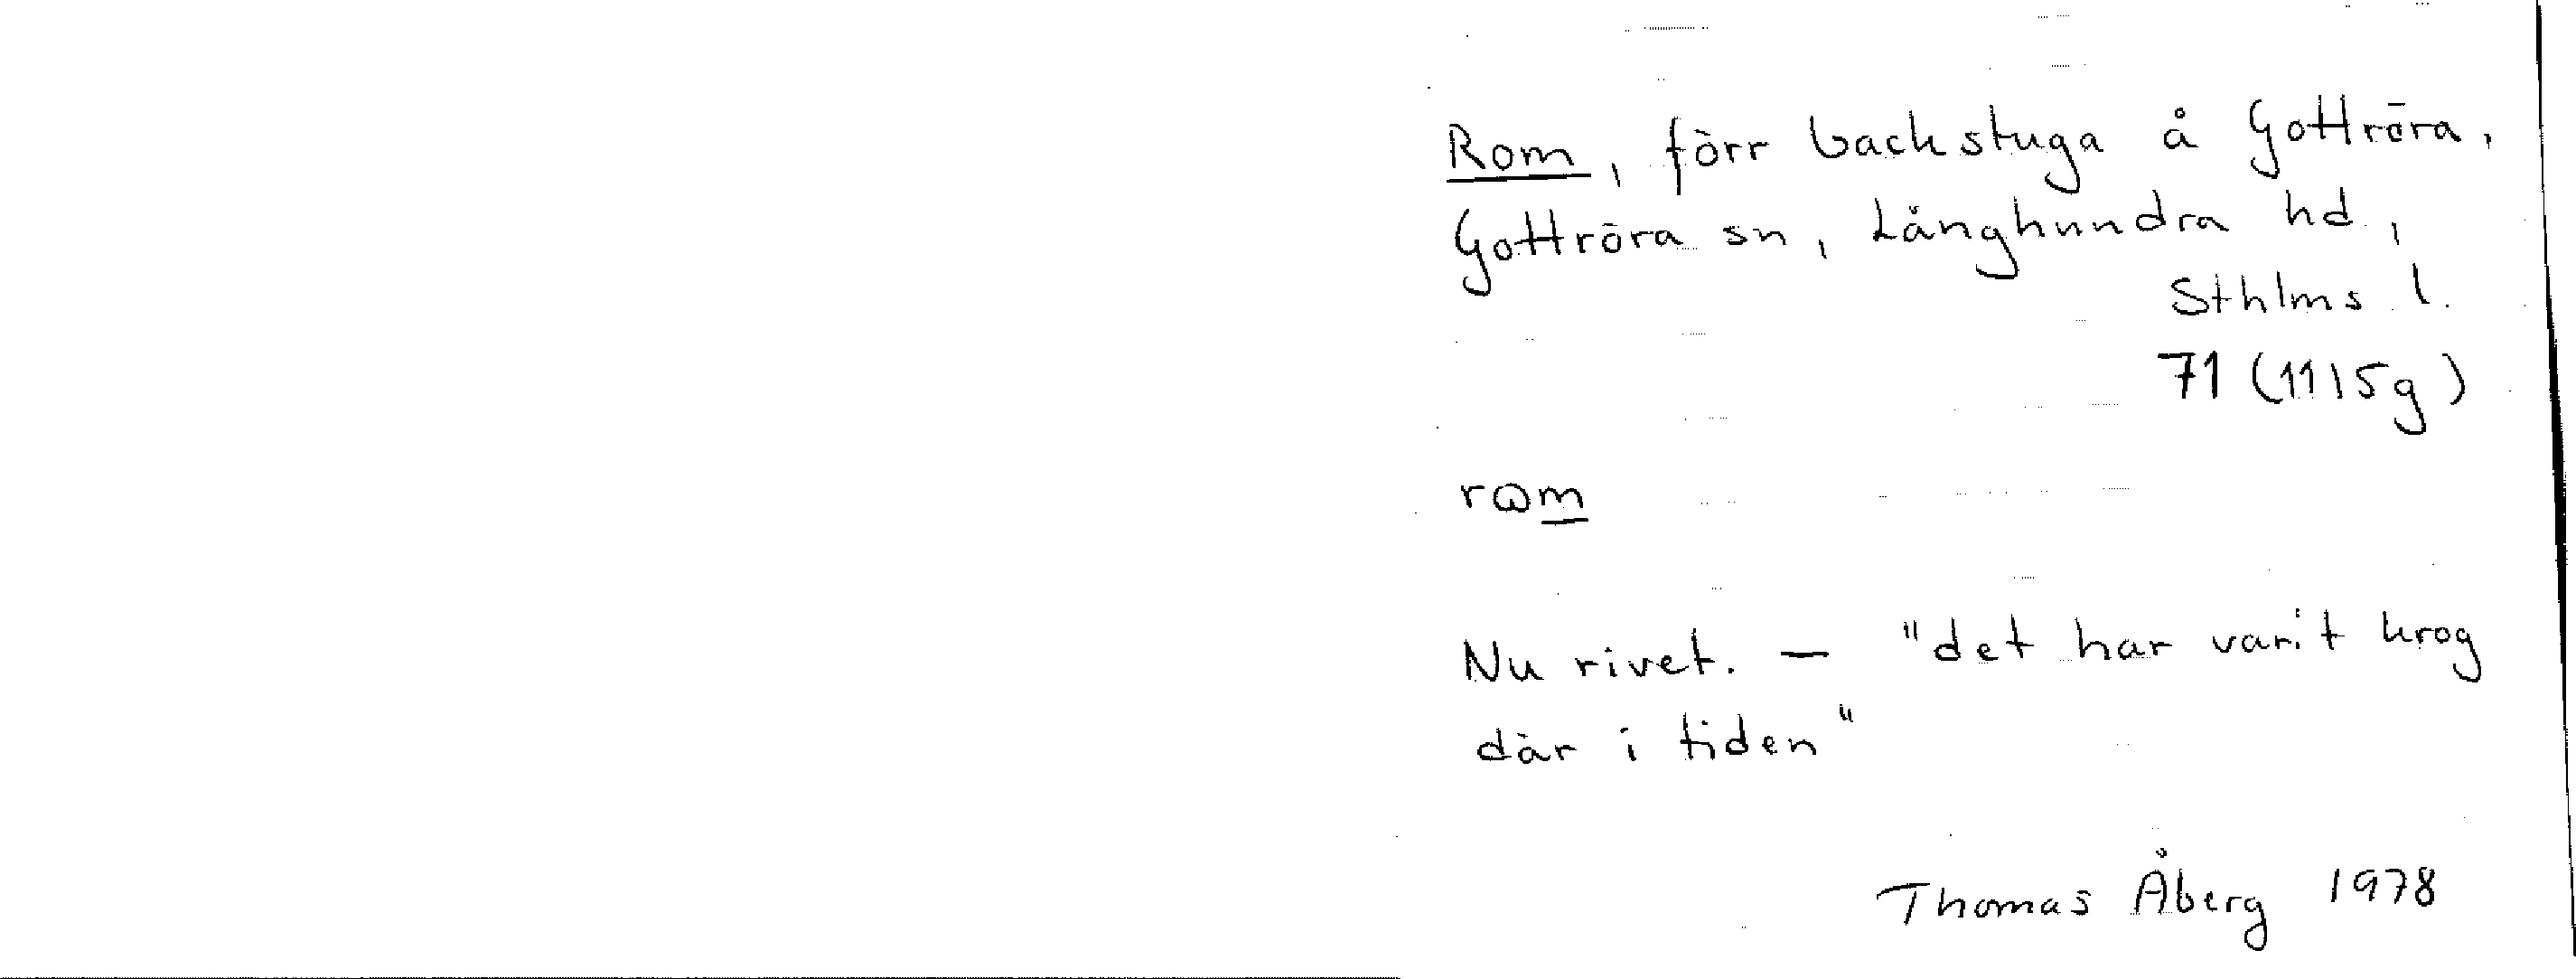 Rom, förr backstuga å Gottröra,
Gottröra sn, Långhundra hd,
Sthlms l.
71 (1115g)
rɷm
Nu rivet. — "det har varit krog
där i tiden"
Thomas Åberg 1978